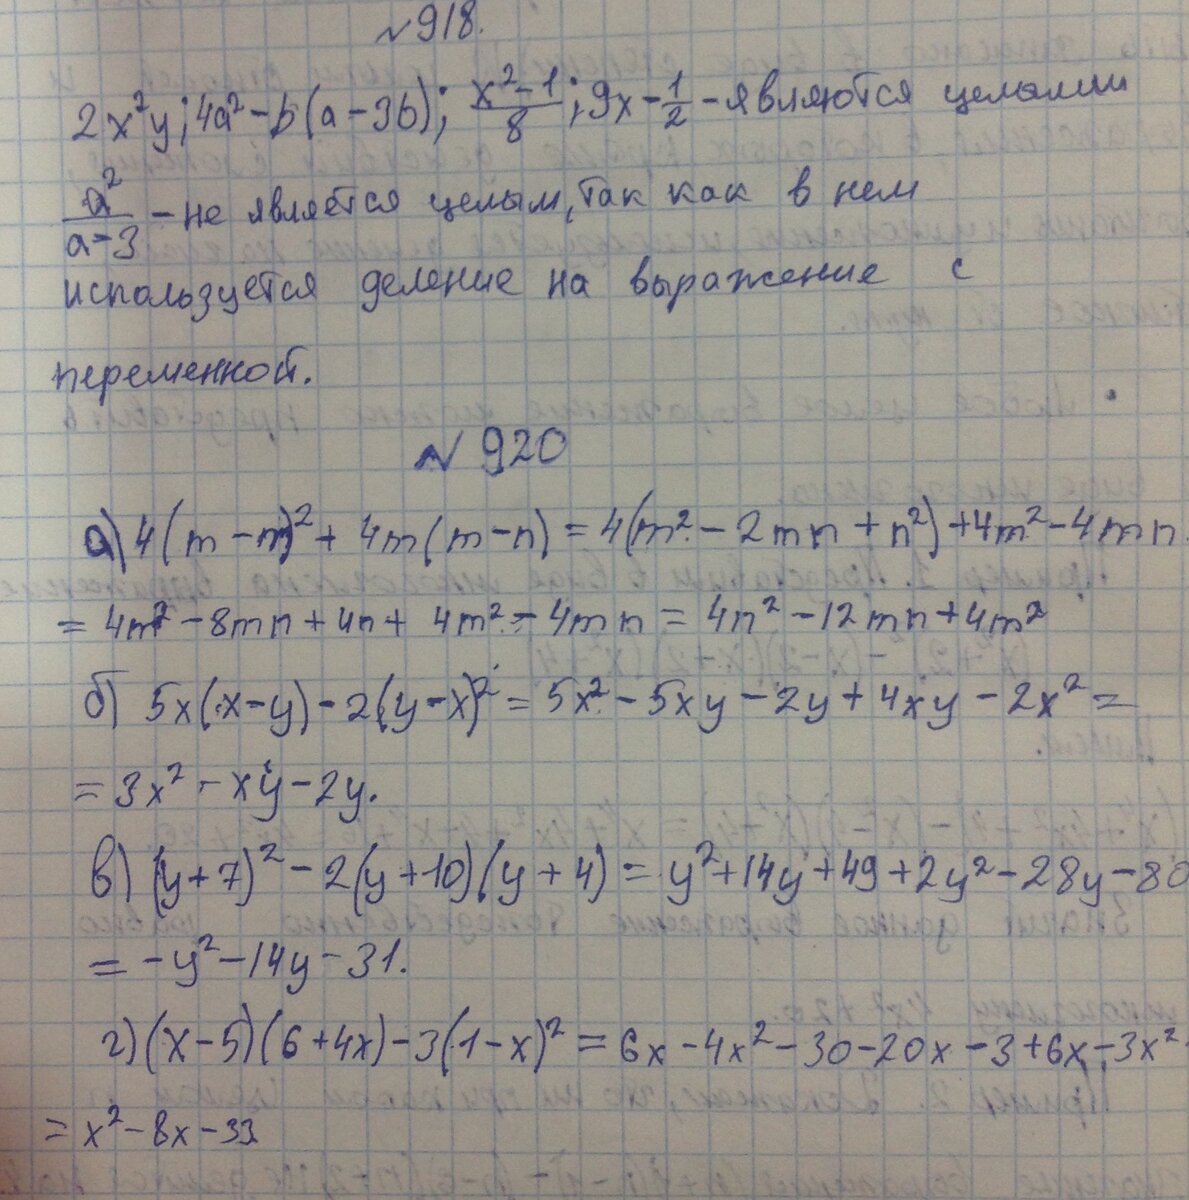 №918.
2x²y; 4a² - b(a - 3b); (x² - 1)/8; 9x - 1/2 - являются целыми
a²/(a - 3) - не является целым, так как в нем
используется деление на выражение с
переменной.
№920
а) 4(m - n)² + 4m(m - n) = 4(m² - 2mn + n²) + 4m² - 4mn
= 4m² - 8mn + 4n + 4m² - 4mn = 4n² - 12mn + 4m²
б) 5x(x - y) - 2(y - x)² = 5x² - 5xy - 2y + 4xy - 2x² =
= 3x² - xy - 2y.
в) (y + 7)² - 2(y + 10)(y + 4) = y² + 14y + 49 + 2y² - 28y - 80
= -y² - 14y - 31.
г) (x - 5)(6 + 4x) - 3(1 - x)² = 6x - 4x² - 30 - 20x - 3 + 6x - 3x²
= x² - 8x - 33